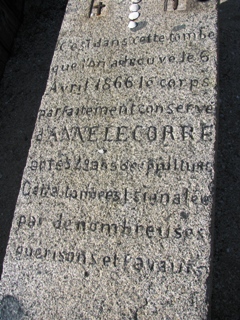 C'est dans cette tombe
que l'on a trouvé le 6
Avril 1866 le corps
parfaitement conservé
d'ANNE LE CORRE
après ans de sépulture
Cette tombe est signalée
par de nombreuses
guérisons et faveurs